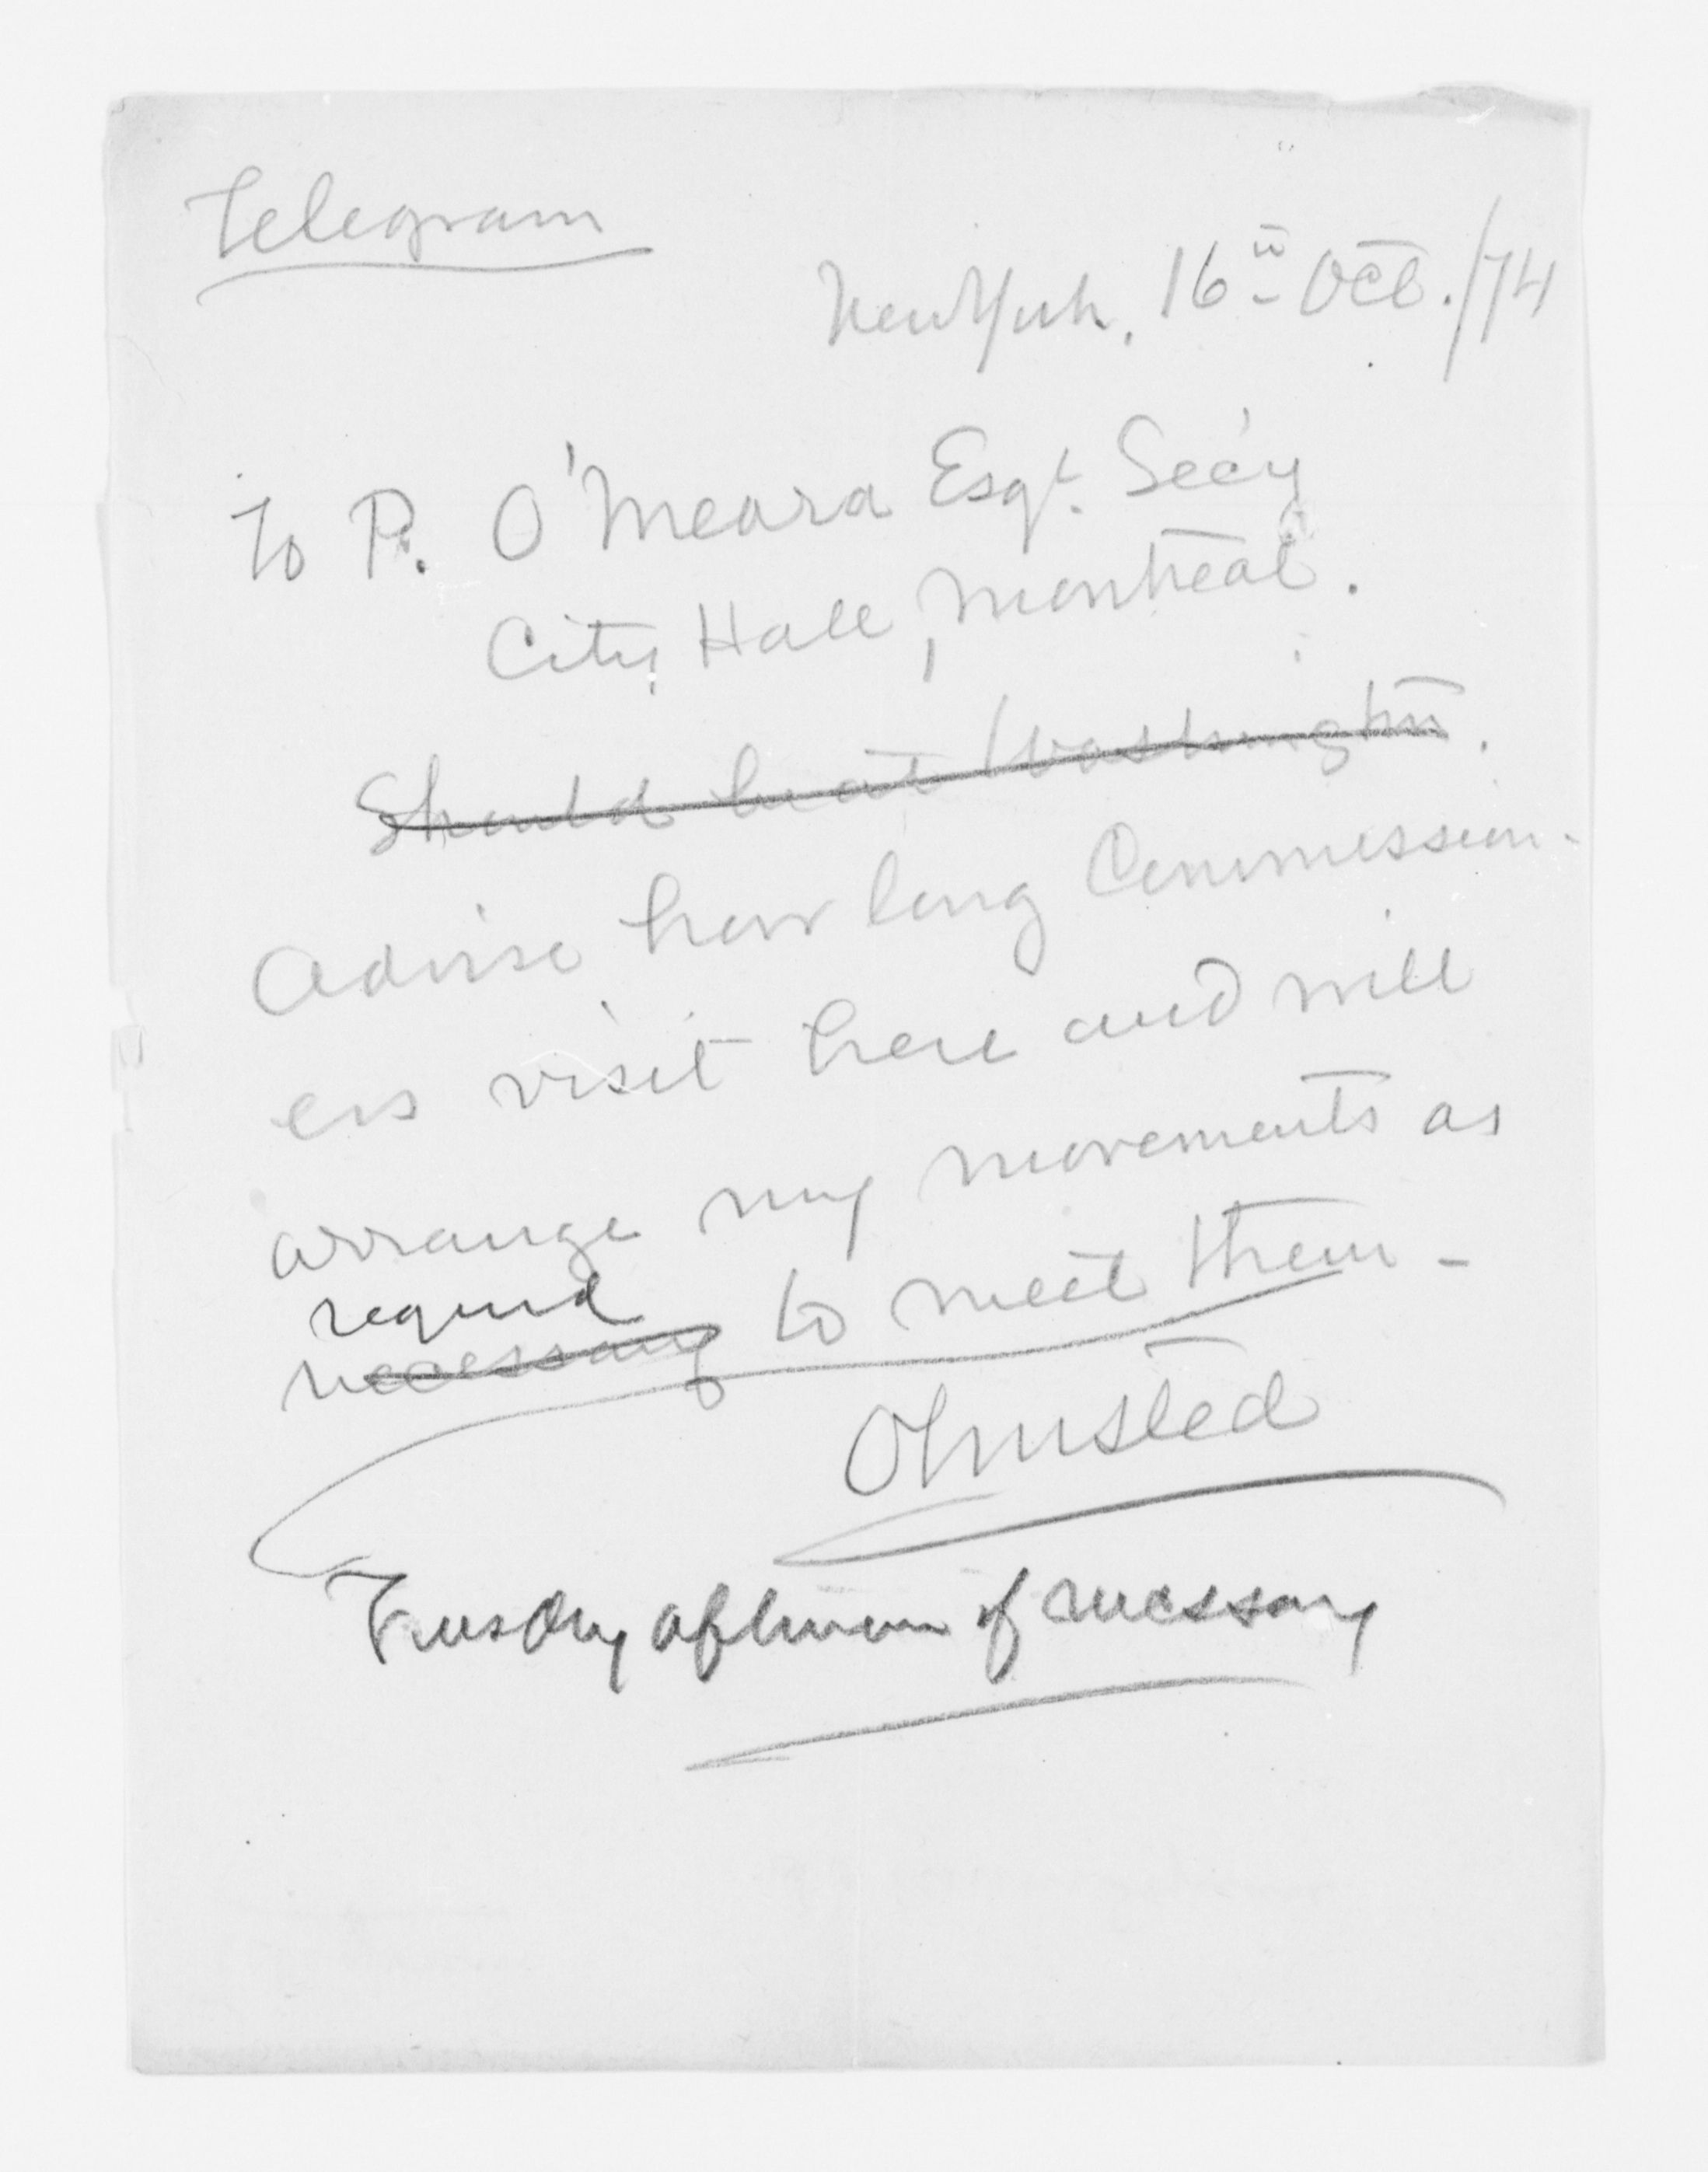 Telegram
New York, 16th Oct./74
To P. O'Meara Esqr. Sec'y
City Hall, Montreal.
Should be at Washington.
Advise how long Commission-
ers visit here and will
arrange my movements as
required
necessary to meet them -
Olmsted
Tuesday afternoon if necessary